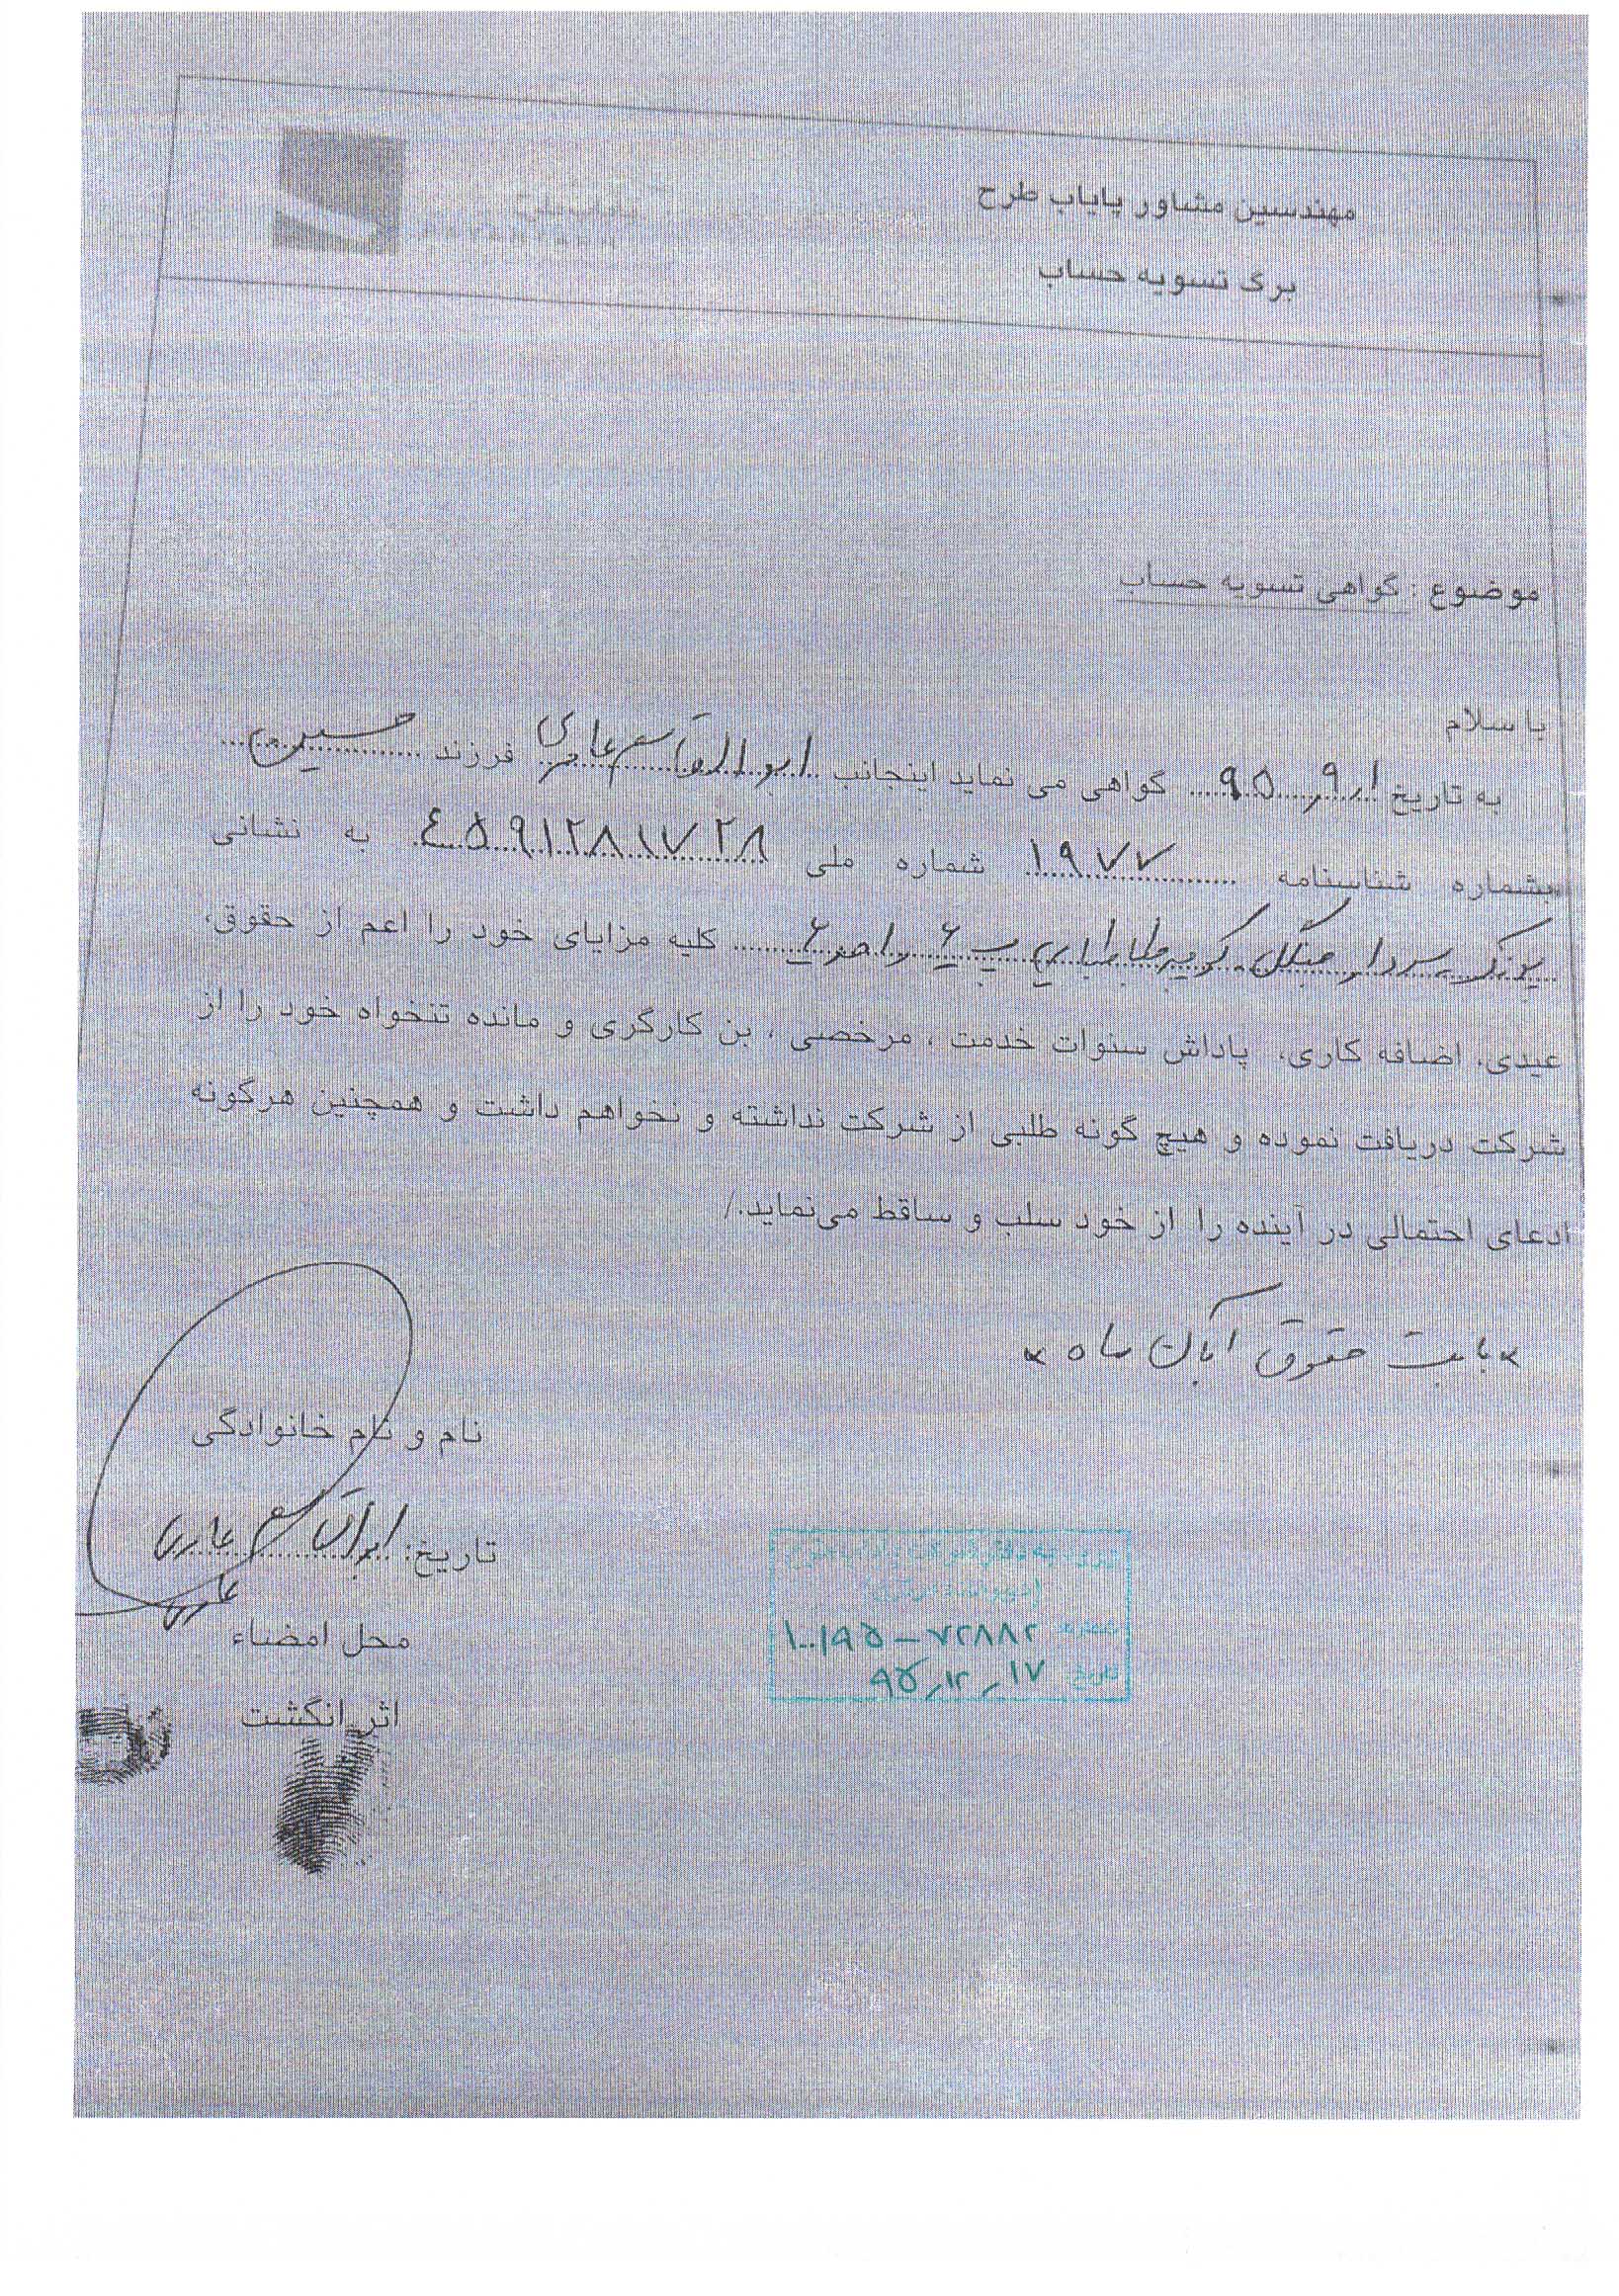 مهندسین مشاور پایاب طرح
برگ تسویه حساب
پایاب طرح
موضوع : گواهی تسویه حساب
با سلام
به تاریخ ۹۵٫۹٫۱ گواهی می نماید اینجانب ابوالقاسم عامری فرزند حسین
بشماره شناسنامه ۱۹۷۷ شماره ملی ۴۵۹۱۲۸۱۷۲۸ به نشانی
پونک سردار جنگل کوچه طباطبایی پ ۶ واحد ۶ کلیه مزایای خود را اعم از حقوق،
عیدی، اضافه کاری، پاداش سنوات خدمت ، مرخصی ، بن کارگری و مانده تنخواه خود را از
شرکت دریافت نموده و هیچ گونه طلبی از شرکت نداشته و نخواهم داشت و همچنین هرگونه
ادعای احتمالی در آینده را از خود سلب و ساقط می‌نماید./
«بابت حقوق آبان ماه»
نام و نام خانوادگی
تاریخ: ابوالقاسم عامری
محل امضاء
اثر انگشت
شماره ۱۰۰/۹۵-۷۲۸۸۲
تاریخ ۹۵٫۱۲٫۱۷